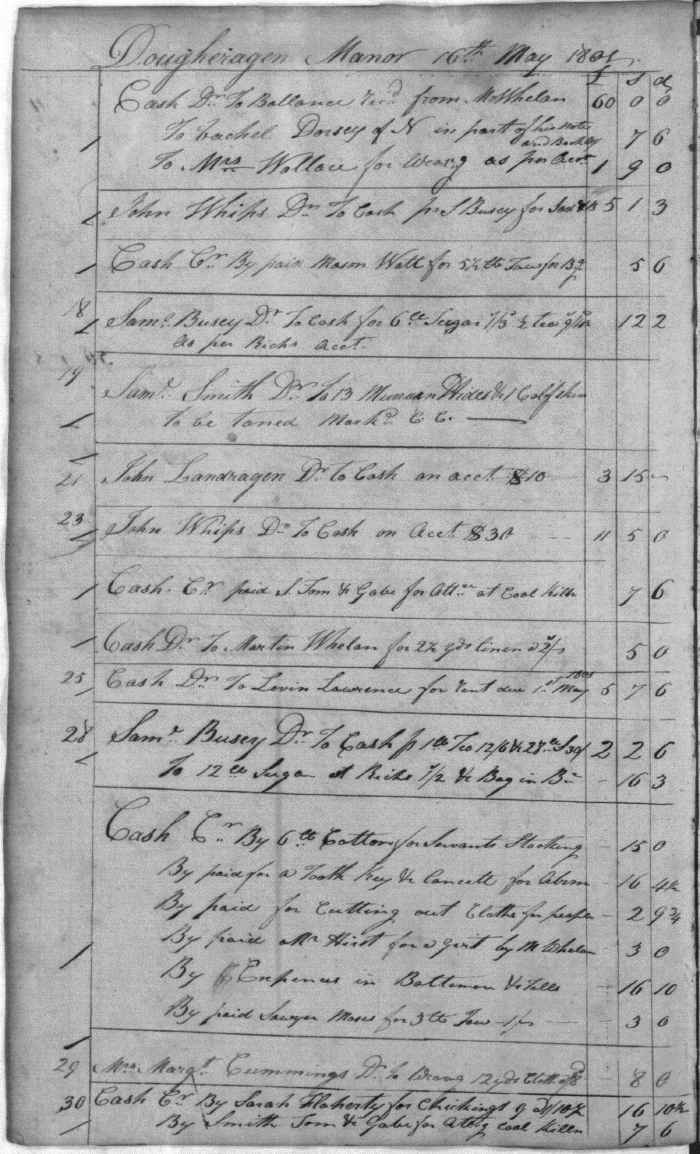 Dougheragen Manor 16th May 1801
£ S d
Cash Dr To Ballance recd from Mr Whelan 60 0 0
To Rachel Dorsey of N in part of his note and Backley 7 6
To Mrs Wallace for Weavg as per Acct 1 9 0
John Whips Dr To Cash pr S Busey for 5 1 3
Cash Cr By paid Mason Watt for 5½ lb Tow for Bg 5 6
18 Saml Busey Dr To Cash for 6 lb Sugar 1/3 ½ tea 12 2
as per Ricks Acct
19 Saml Smith Dr To 13 Murrain Hides & 1 Calfskin
to be taned Markd C C
21 John Landragen Dr to Cash on acct $10 3 15
23 John Whips Dr To Cash on Acct $30 11 5 0
Cash Cr paid S. Tom & Gabe for Attce at Coal Kiln 7 6
Cash Dr To Martin Whelan for 2½ yds linen a 2/ 5 0
25 Cash Dr To Levin Lawrence for rent due 1st May 5 7 6
28 Saml Busey Dr To Cash p 1 lb Tea 12/6 & 28 lb 2 2 6
To 12 lb Sugar at Ricks 1/2 & Bag in Bn - 16 3
Cash Cr By 6 lb Cotton for Servants Stocking - 15 0
By paid for a Tooth Key & Lancett for Abrm - 16 4½
By paid for Cutting out Cloths for people - 2 9¾
By paid Mr Hirst for a girt by M Whelan - 3 0
By Expences in Baltimore & Tolls - 16 10
By paid Sawyer Moses for 3 lb Tow 1/ - 3 0
29 Mrs Margt Cummings Dr to Weavg 12 yds Cloth - 8 0
30 Cash Cr By Sarah Flaherty for Chickings 16 10½
By Smith Tom & Gabe for Atteg coal Kiln 7 6